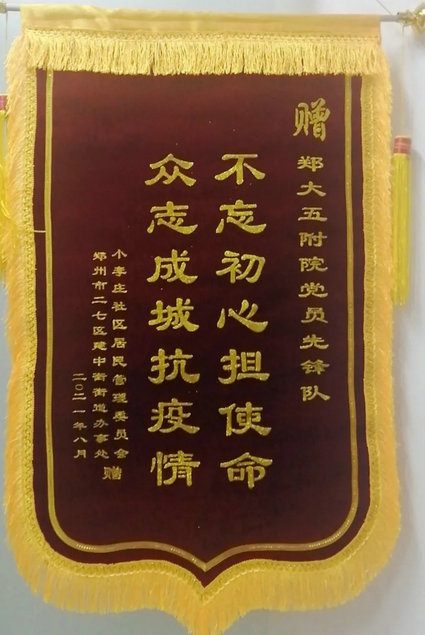 赠郑大五附院党员先锋队
不忘初心担使命
众志成城抗疫情
小李庄社区居民管理委员会
郑州市二七区建中街街道办事处 赠
二〇二一年八月